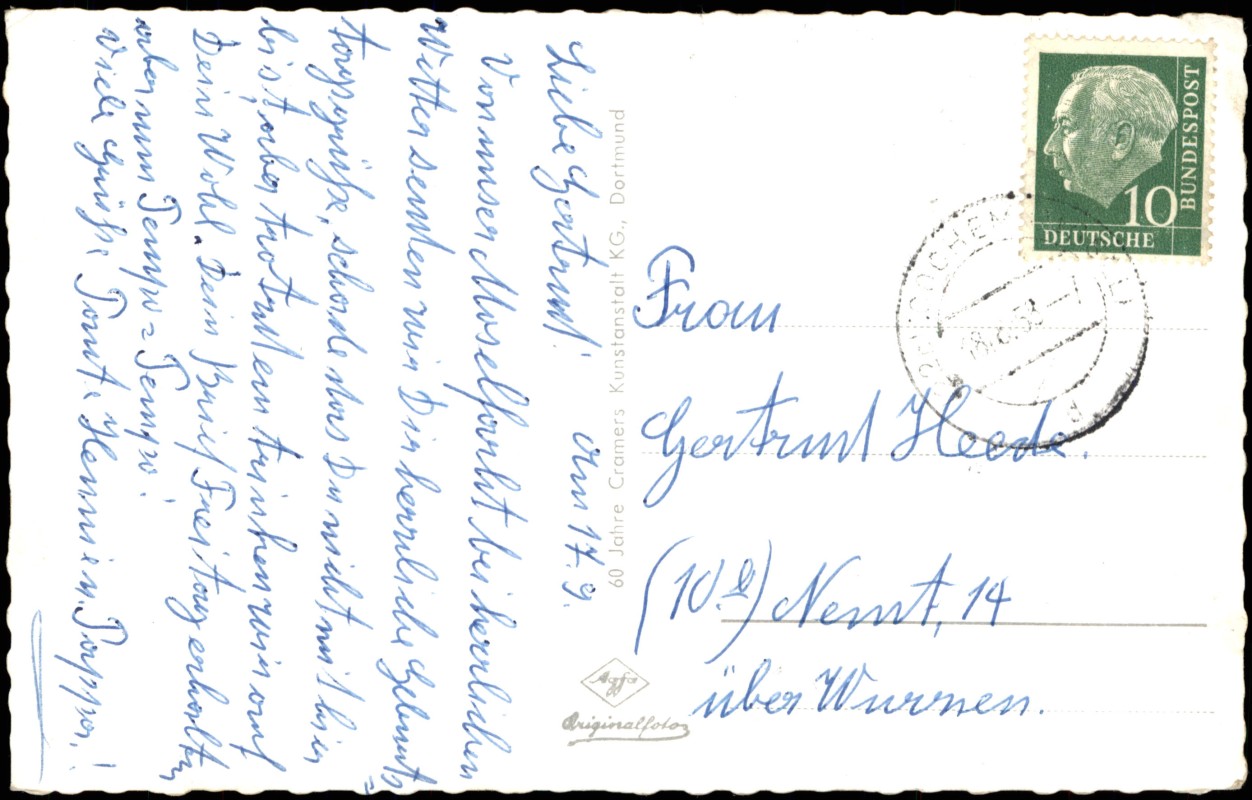 Liebe Gertrud! am 17.9.
Von unser Moselfahrt bei herrlichen
Wetter senden wir Dir herzliche Geburts=
tagsgrüße, schade das Du nicht mit hier
bist, aber trotzdem trinken wir auf
Dein Wohl. Dein Brief Freitag erhalten
aber nun Tempo = Tempo!
Viele Grüße Tante Henni u. Pappa!
60 Jahre Cramers Kunstanstalt KG., Dortmund
Agfa
Originalfoto
10
DEUTSCHE
BUNDESPOST
COCHEM
Frau
Gertrud Heede.
(10a) Nemt, 14
über Wurzen.